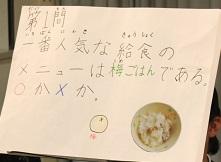 第1問
一番人気な給食の
メニューは梅ごはんである。
○か×か。
梅